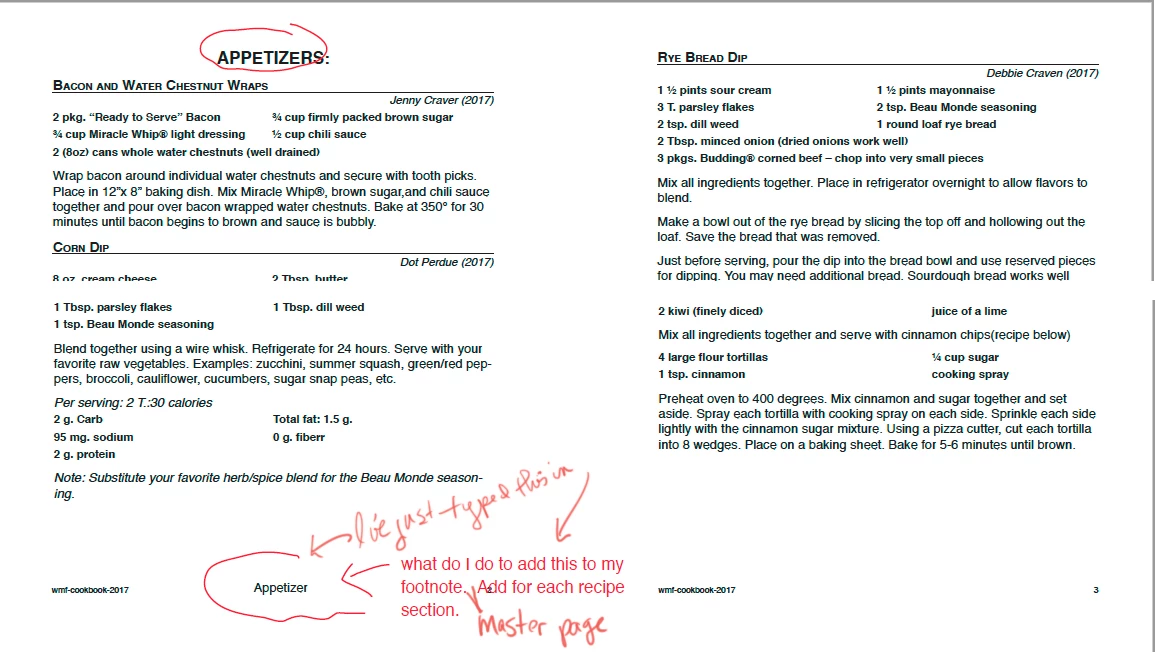 APPETIZERS:
BACON AND WATER CHESTNUT WRAPS
Jenny Craver (2017)
2 pkg. “Ready to Serve” Bacon ¾ cup firmly packed brown sugar
¾ cup Miracle Whip® light dressing ½ cup chili sauce
2 (8oz) cans whole water chestnuts (well drained)
Wrap bacon around individual water chestnuts and secure with tooth picks.
Place in 12”x 8” baking dish. Mix Miracle Whip®, brown sugar,and chili sauce
together and pour over bacon wrapped water chestnuts. Bake at 350° for 30
minutes until bacon begins to brown and sauce is bubbly.
CORN DIP
Dot Perdue (2017)
8 oz. cream cheese 2 Tbsp. butter
1 Tbsp. parsley flakes 1 Tbsp. dill weed
1 tsp. Beau Monde seasoning
Blend together using a wire whisk. Refrigerate for 24 hours. Serve with your
favorite raw vegetables. Examples: zucchini, summer squash, green/red pep-
pers, broccoli, cauliflower, cucumbers, sugar snap peas, etc.
Per serving: 2 T.:30 calories
2 g. Carb Total fat: 1.5 g.
95 mg. sodium 0 g. fiberr
2 g. protein
Note: Substitute your favorite herb/spice blend for the Beau Monde season-
ing.
I've just typed this in
what do I do to add this to my
footnote. Add for each recipe
section.
master page
wmf-cookbook-2017 Appetizer 2
RYE BREAD DIP
Debbie Craven (2017)
1 ½ pints sour cream 1 ½ pints mayonnaise
3 T. parsley flakes 2 tsp. Beau Monde seasoning
2 tsp. dill weed 1 round loaf rye bread
2 Tbsp. minced onion (dried onions work well)
3 pkgs. Budding® corned beef – chop into very small pieces
Mix all ingredients together. Place in refrigerator overnight to allow flavors to
blend.
Make a bowl out of the rye bread by slicing the top off and hollowing out the
loaf. Save the bread that was removed.
Just before serving, pour the dip into the bread bowl and use reserved pieces
for dipping. You may need additional bread. Sourdough bread works well
2 kiwi (finely diced) juice of a lime
Mix all ingredients together and serve with cinnamon chips(recipe below)
4 large flour tortillas ¼ cup sugar
1 tsp. cinnamon cooking spray
Preheat oven to 400 degrees. Mix cinnamon and sugar together and set
aside. Spray each tortilla with cooking spray on each side. Sprinkle each side
lightly with the cinnamon sugar mixture. Using a pizza cutter, cut each tortilla
into 8 wedges. Place on a baking sheet. Bake for 5-6 minutes until brown.
wmf-cookbook-2017 3